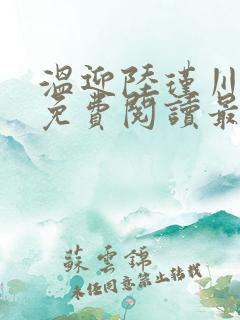 溫迎陸瑾川
免費閱讀最
蘇雲錦
未經同意禁止轉載